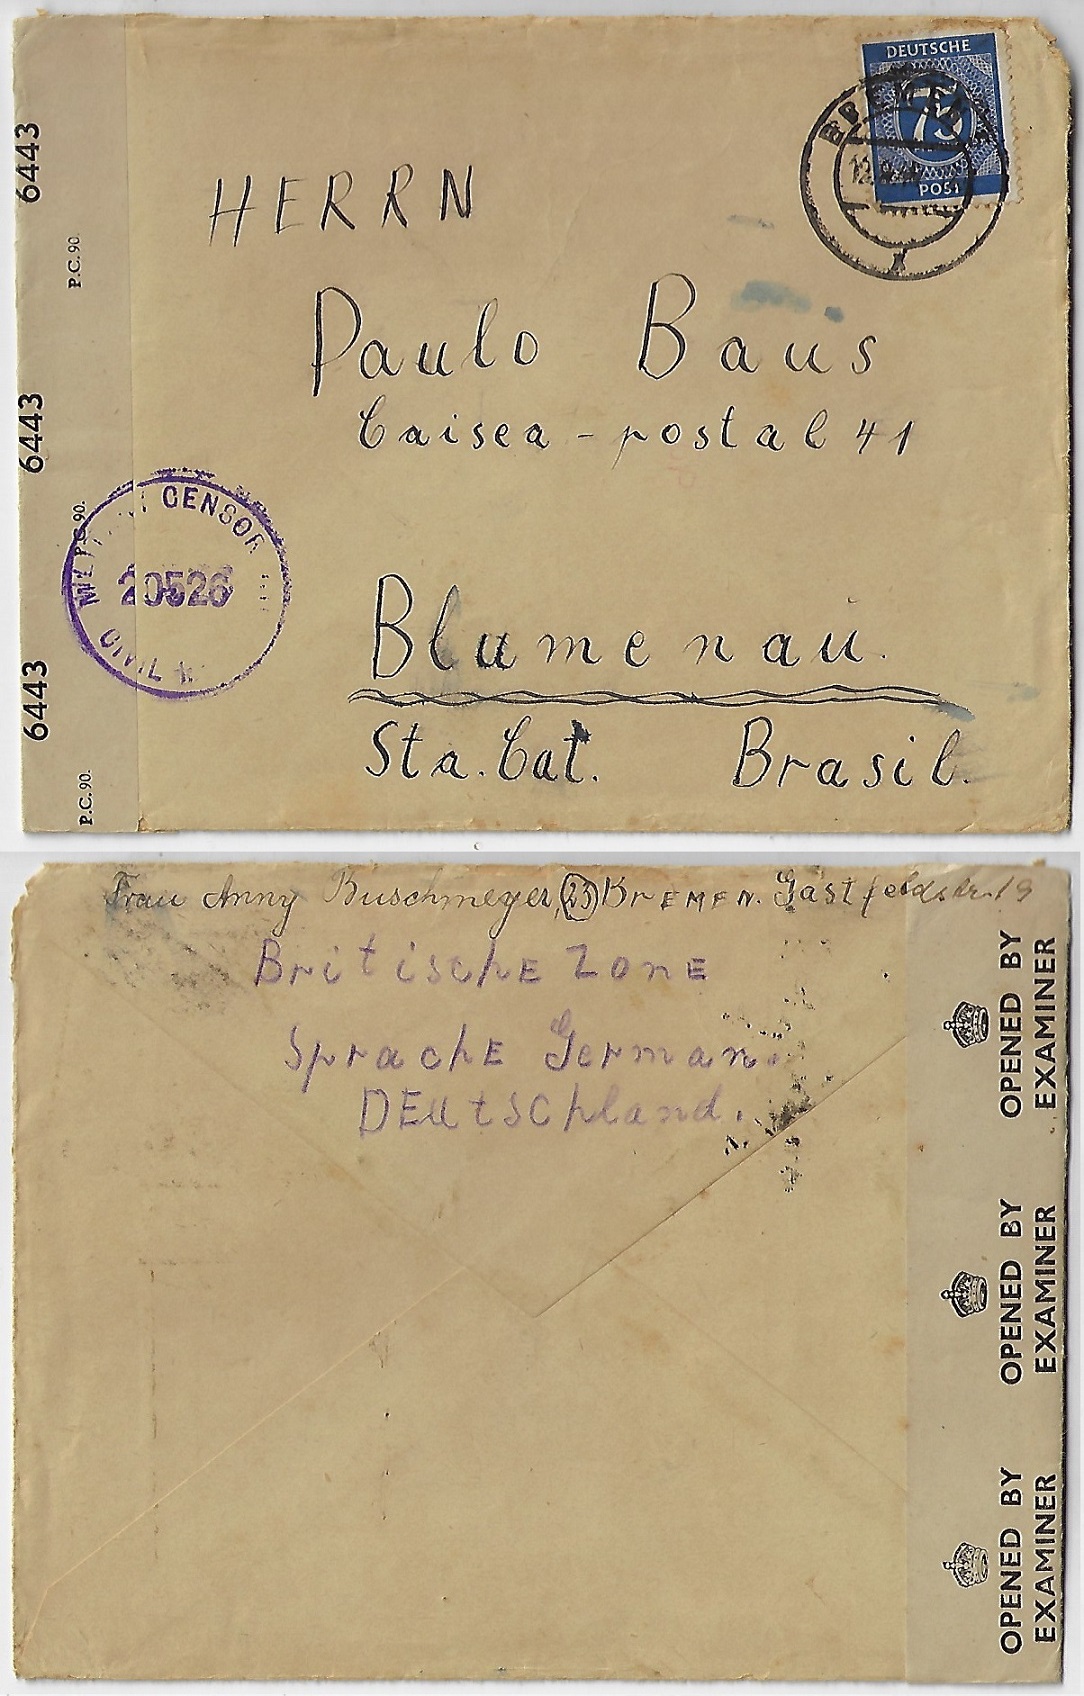 DEUTSCHE
75
POST
BREMEN
12.
HERRN
Paulo Baus
Caisea - postal 41
Blumenau.
Sta. Cat. Brasil.
6443
P.C. 90.
6443
P.C. 90.
6443
P.C. 90.
CENSOR
20526
CIVIL
Frau Anny Buschmeyer, (23) BREMEN. Gastfeldstr. 19
BritischE ZonE
SprachE German.
DEutSchland.
OPENED BY
EXAMINER
OPENED BY
EXAMINER
OPENED BY
EXAMINER